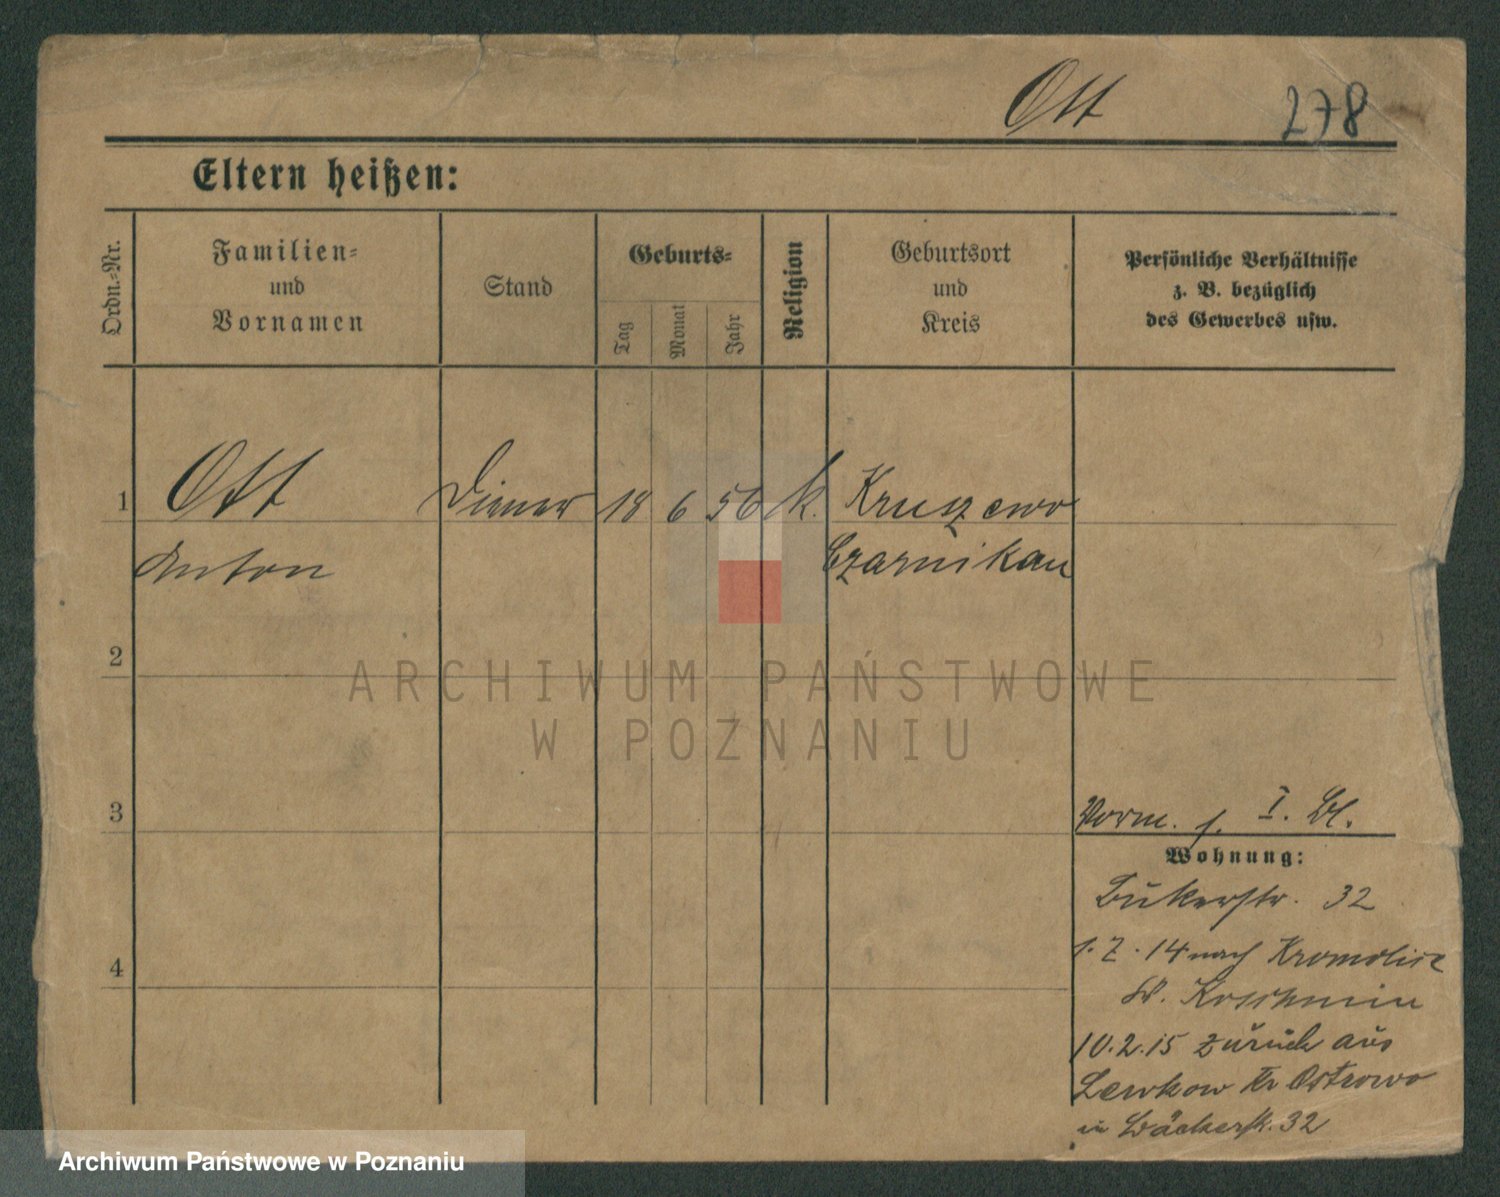 Ott 278
Eltern heißen:
Ordn.-Nr.
Familien-
und
Vornamen
Stand
Geburts-
Tag
Monat
Jahr
Religion
Geburtsort
und
Kreis
Persönliche Verhältnisse
z. B. bezüglich
des Gewerbes usw.
1 Ott Diener 18 6 56 k. Kruszewo
Anton Czarnikau
2
ARCHIWUM PAŃSTWOWE
W POZNANIU
3
Vorm. s. I. Bl.
Wohnung:
Bukerstr. 32
4
1. 7. 14 nach Kromolice
Koschmin
10.2.15 zurück aus
Lewkow Kr Ostrowo
in Bäckerstr. 32
Archiwum Państwowe w Poznaniu